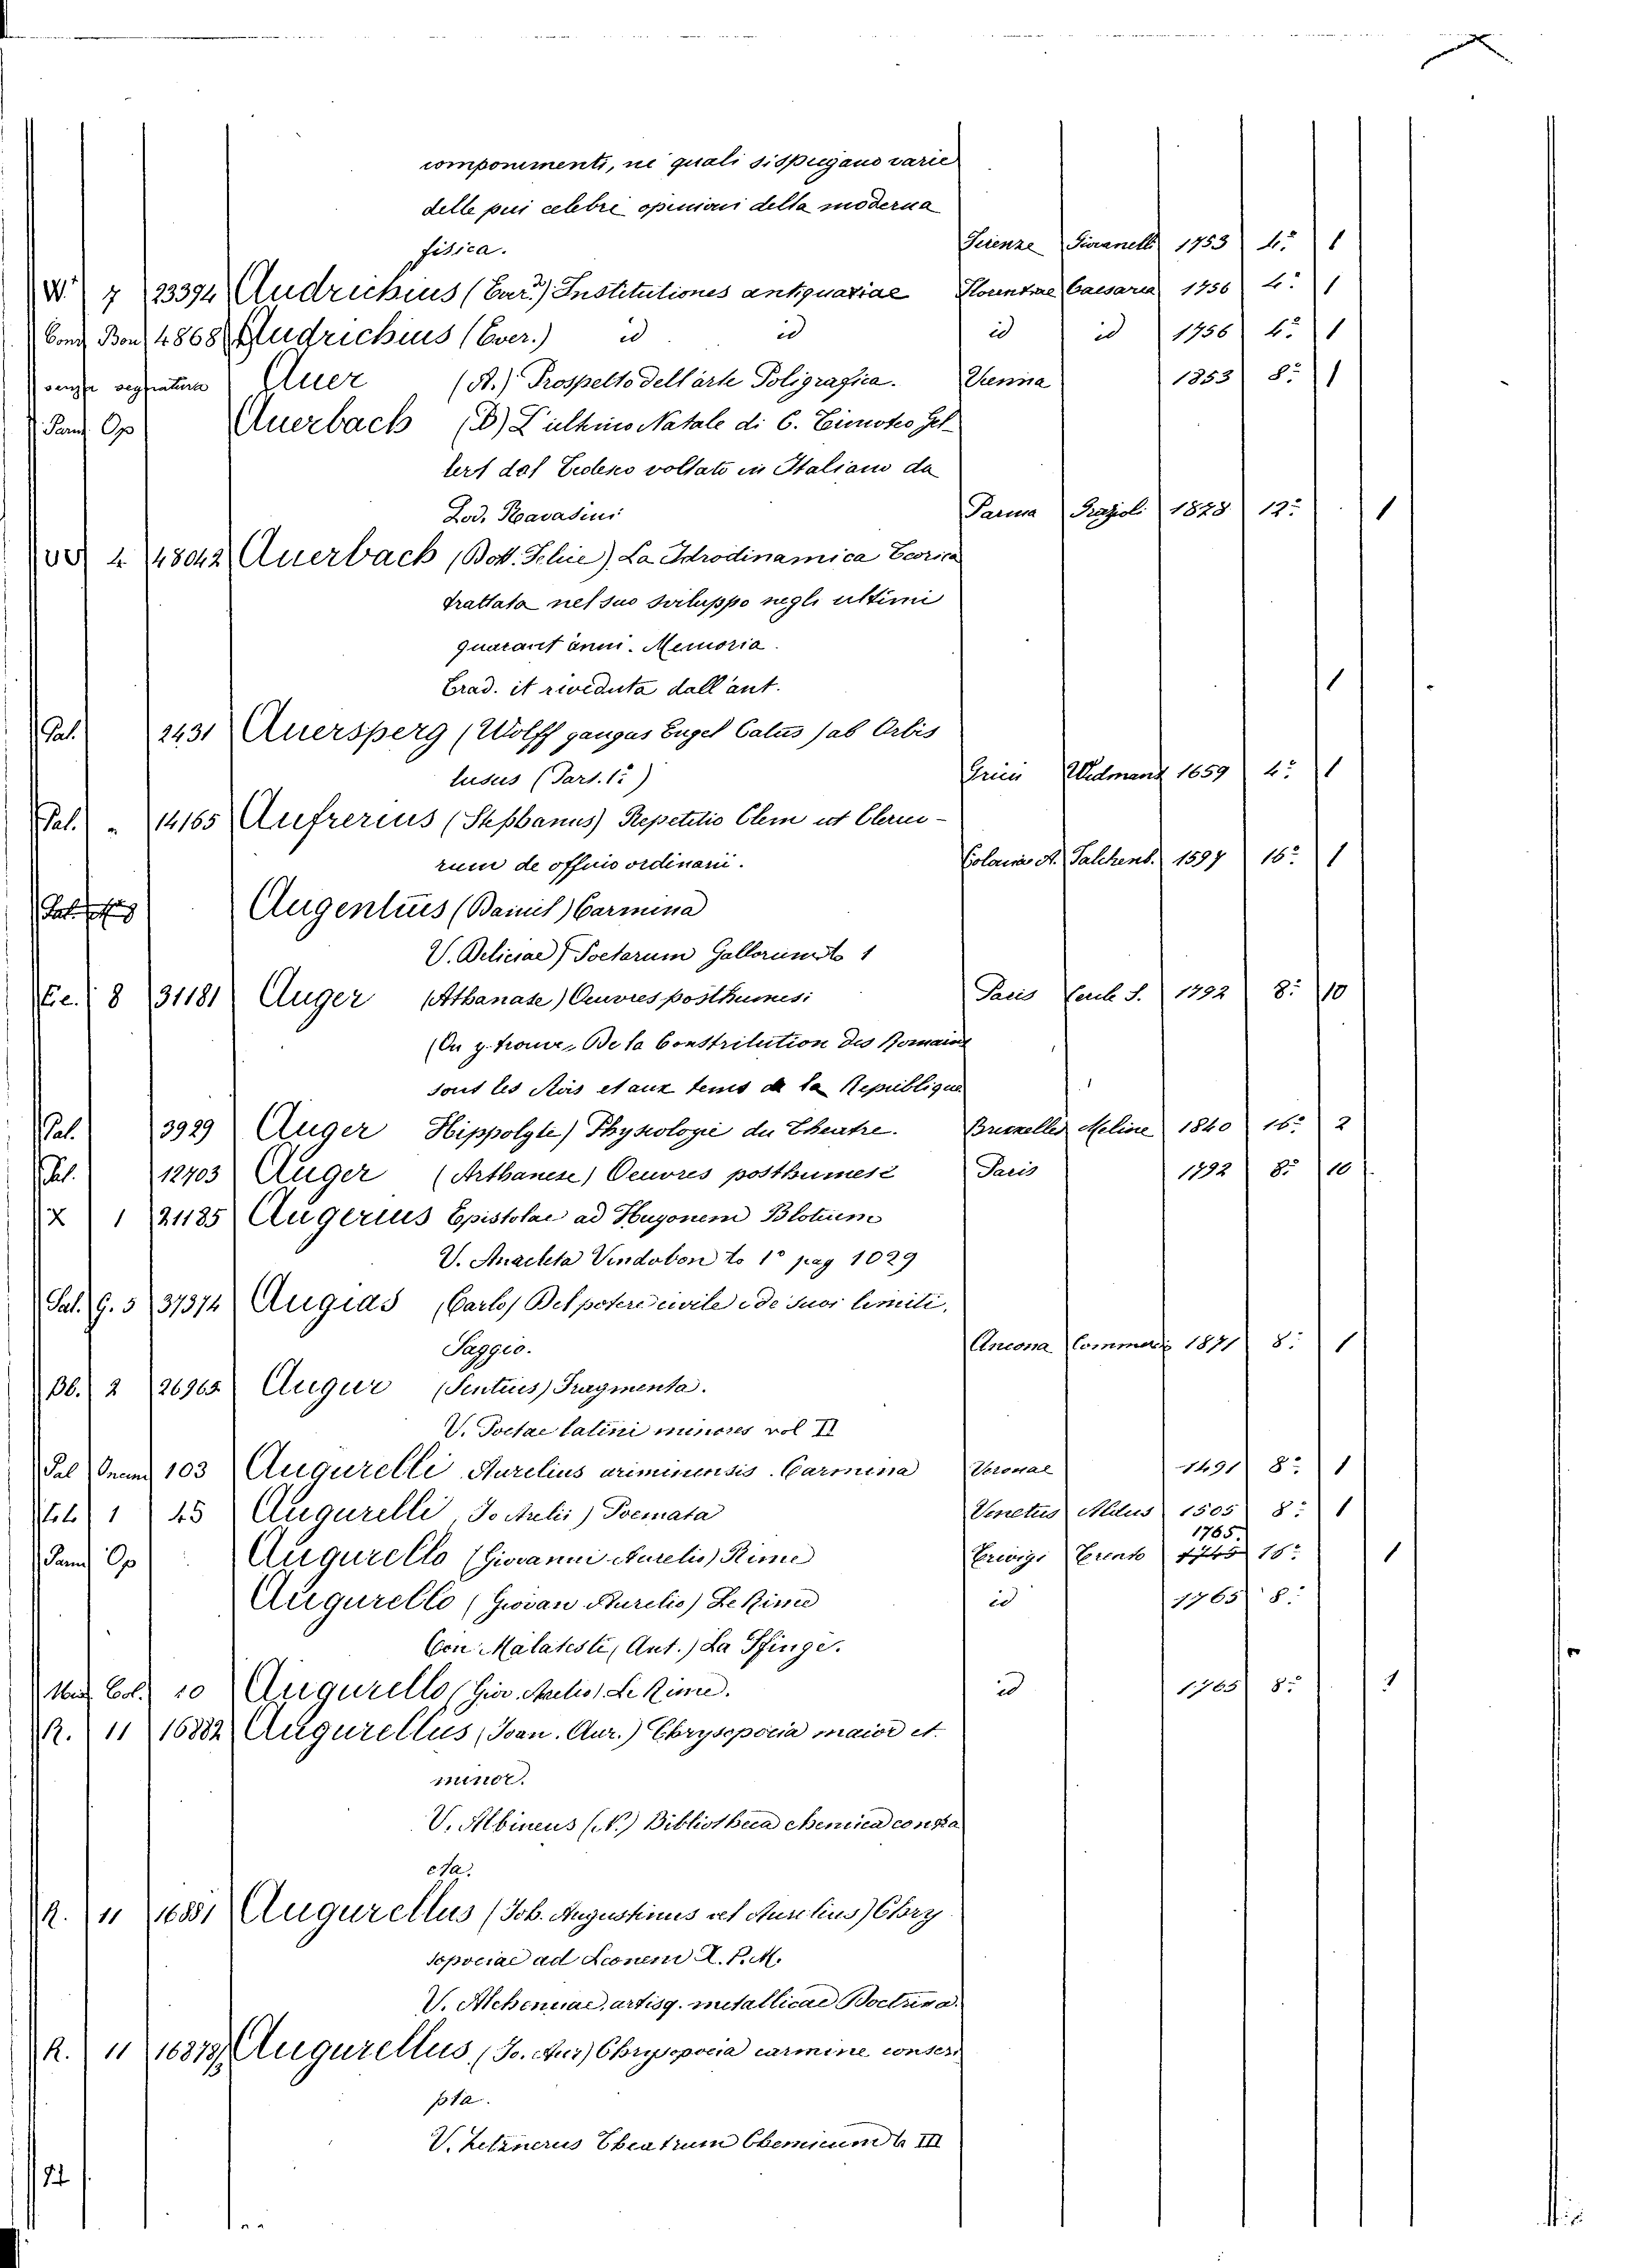 componimenti, ne quali si spiegano varie
delle piu celebre opinioni della moderna
fisica. Firenze Giovanelli 1753 4.º 1
W. 7 23394 Audrichius (Ever.) Institutiones antiquariae Florentiae Caesarea 1756 4º 1
Cons Bon 4868 Audrichius (Ever.) id id id id 1756 4º 1
senza segnatura Auer (A.) Prospetto dell'arte Poligrafica. Vienna 1853 8º 1
Pam Op Auerbach (B) L'ultimo Natale di C. Timoteo Gel-
lert dal Tedesco voltato in Italiano da
Lod. Ravasini Parma Grazioli 1878 12º 1
4 48042 Auerbach (Bott. Schie) La Idrodinamica Teorica
trattata nel suo sviluppo negli ultimi
quarant'anni. Memoria.
Trad. it riveduta dall'aut. 1
Pal. 2431 Auersperg (Wolff gangus Engel Calus) ab Orbis
lusus (Pars. 1.ª) Widmans 1659 4º 1
Pal. " 14165 Aufrerius (Stephanus) Repetitio Clem ut Cleri-
rum de officio ordinarii. Coloniae A. Falchenb. 1597 16º 1
Augentius (Daniel) Carmina
V. Deliciae Poetarum Gallorum to 1
Ee. 8 31181 Auger (Athanase) Œuvres posthumes: Paris 1792 8º 10
(On y trouve, De la Constritution des Romains
sont les Rois et aux tems de la Republique
Pal. 3929 Auger Hippolyte) Physiologie du Theatre. Bruxelles Meline 1840 16º 2
Pal. 12703 Auger (Arthanese) Oeuvres posthumese Paris 1792 8º 10
X 1 21185 Augerius Epistolae ad Hugonem Blotium
V. Analecta Vindobon to 1º pag 1029
Sal. G. 5 37374 Augias (Carlo) Del potere civile e de suoi limiti,
Saggio. Ancona Commerci 1871 8º 1
Bb. 2 26965 Augur (Sentius) Fragmenta.
V. Poetae latini minores vol II
Pal Incun 103 Augurelli Aurelius ariminensis. Carmina Veronae 1491 8º 1
1 45 Augurelli, Jo Arelii) Poemata Venetus Aldus 1505 8º 1
Pam Op Augurello (Giovanni Aurelio) Rime Trevigi Trento 1765 16º 1
Augurello (Giovan Aurelio) Le Rime id 1765 8º
Con Malatesti (Ant.) La Sfinge.
Mis Col. 10 Augurello (Giov. Aurelio) Le Rime. id 1765 8º 1
R. 11 16882 Augurellus (Joan. Aur.) Chrysopoeia maior et
minor.
V. Albineus (N.) Bibliotheca chemica contra
cta.
R. 11 16881 Augurellus (Joh. Augustinus vel Aurelius) Chry
sopoeiae ad Leonem X. P. M.
V. Alchemiae, artisq. metallicae Doctrina.
R. 11 16878 Augurellus (Jo. Aur) Chrysopoeia carmine conscri
pta.
V. Zetznerus Theatrum Chemicum to III